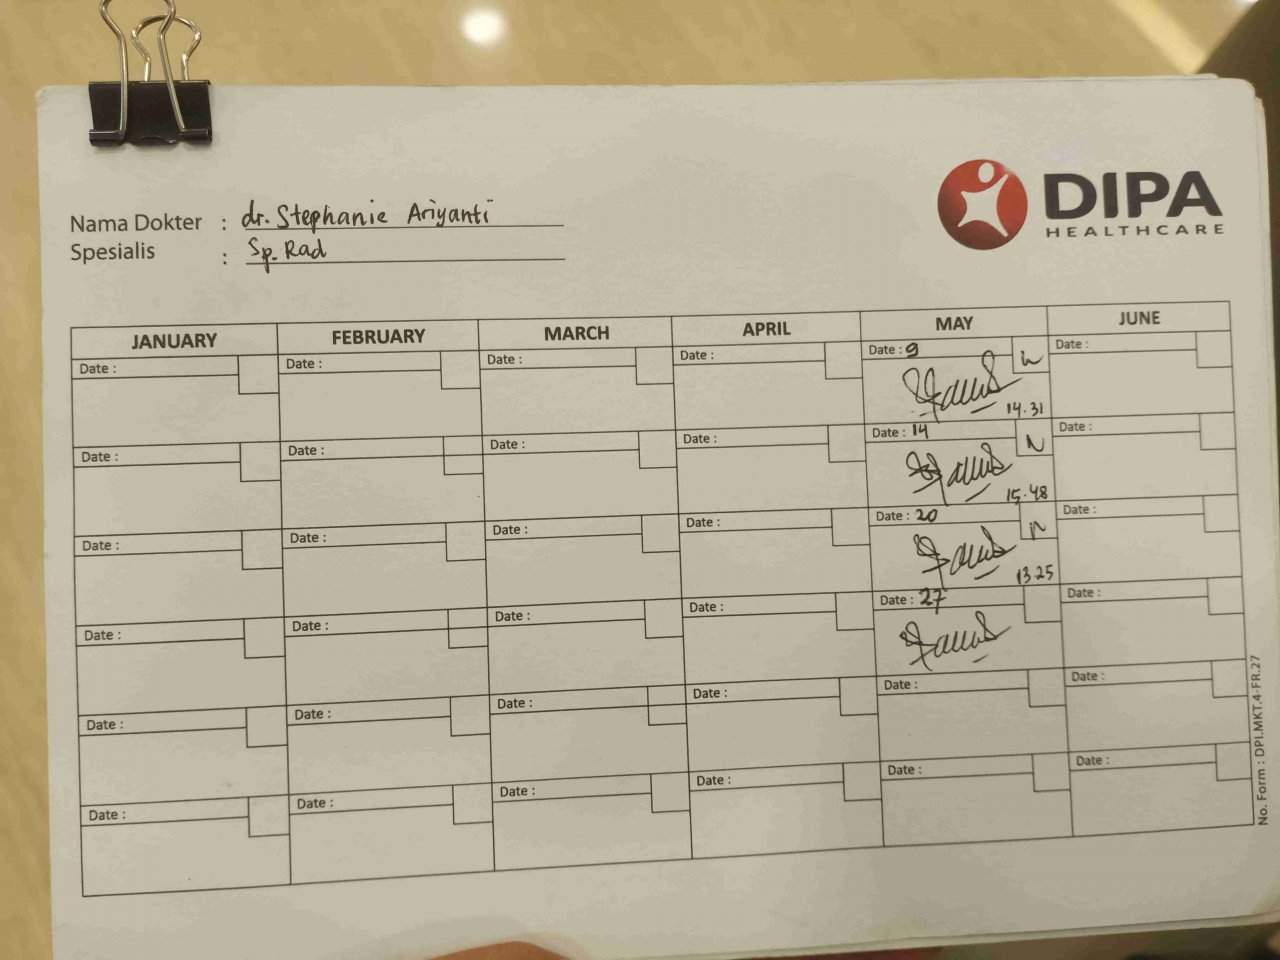 DIPA
HEALTHCARE
Nama Dokter : dr. Stephanie Ariyanti
Spesialis : Sp. Rad
JANUARY FEBRUARY MARCH APRIL MAY JUNE
Date : Date : Date : Date : Date : 9 Date :
14.31
Date : Date : Date : Date : Date : 14 Date :
N
15.48
Date : Date : Date : Date : Date : 20 Date :
13.25
Date : Date : Date : Date : Date : 27 Date :
Date : Date : Date : Date : Date : Date :
Date : Date : Date : Date : Date : Date :
No. Form : DPI.MKT.4-FR.27